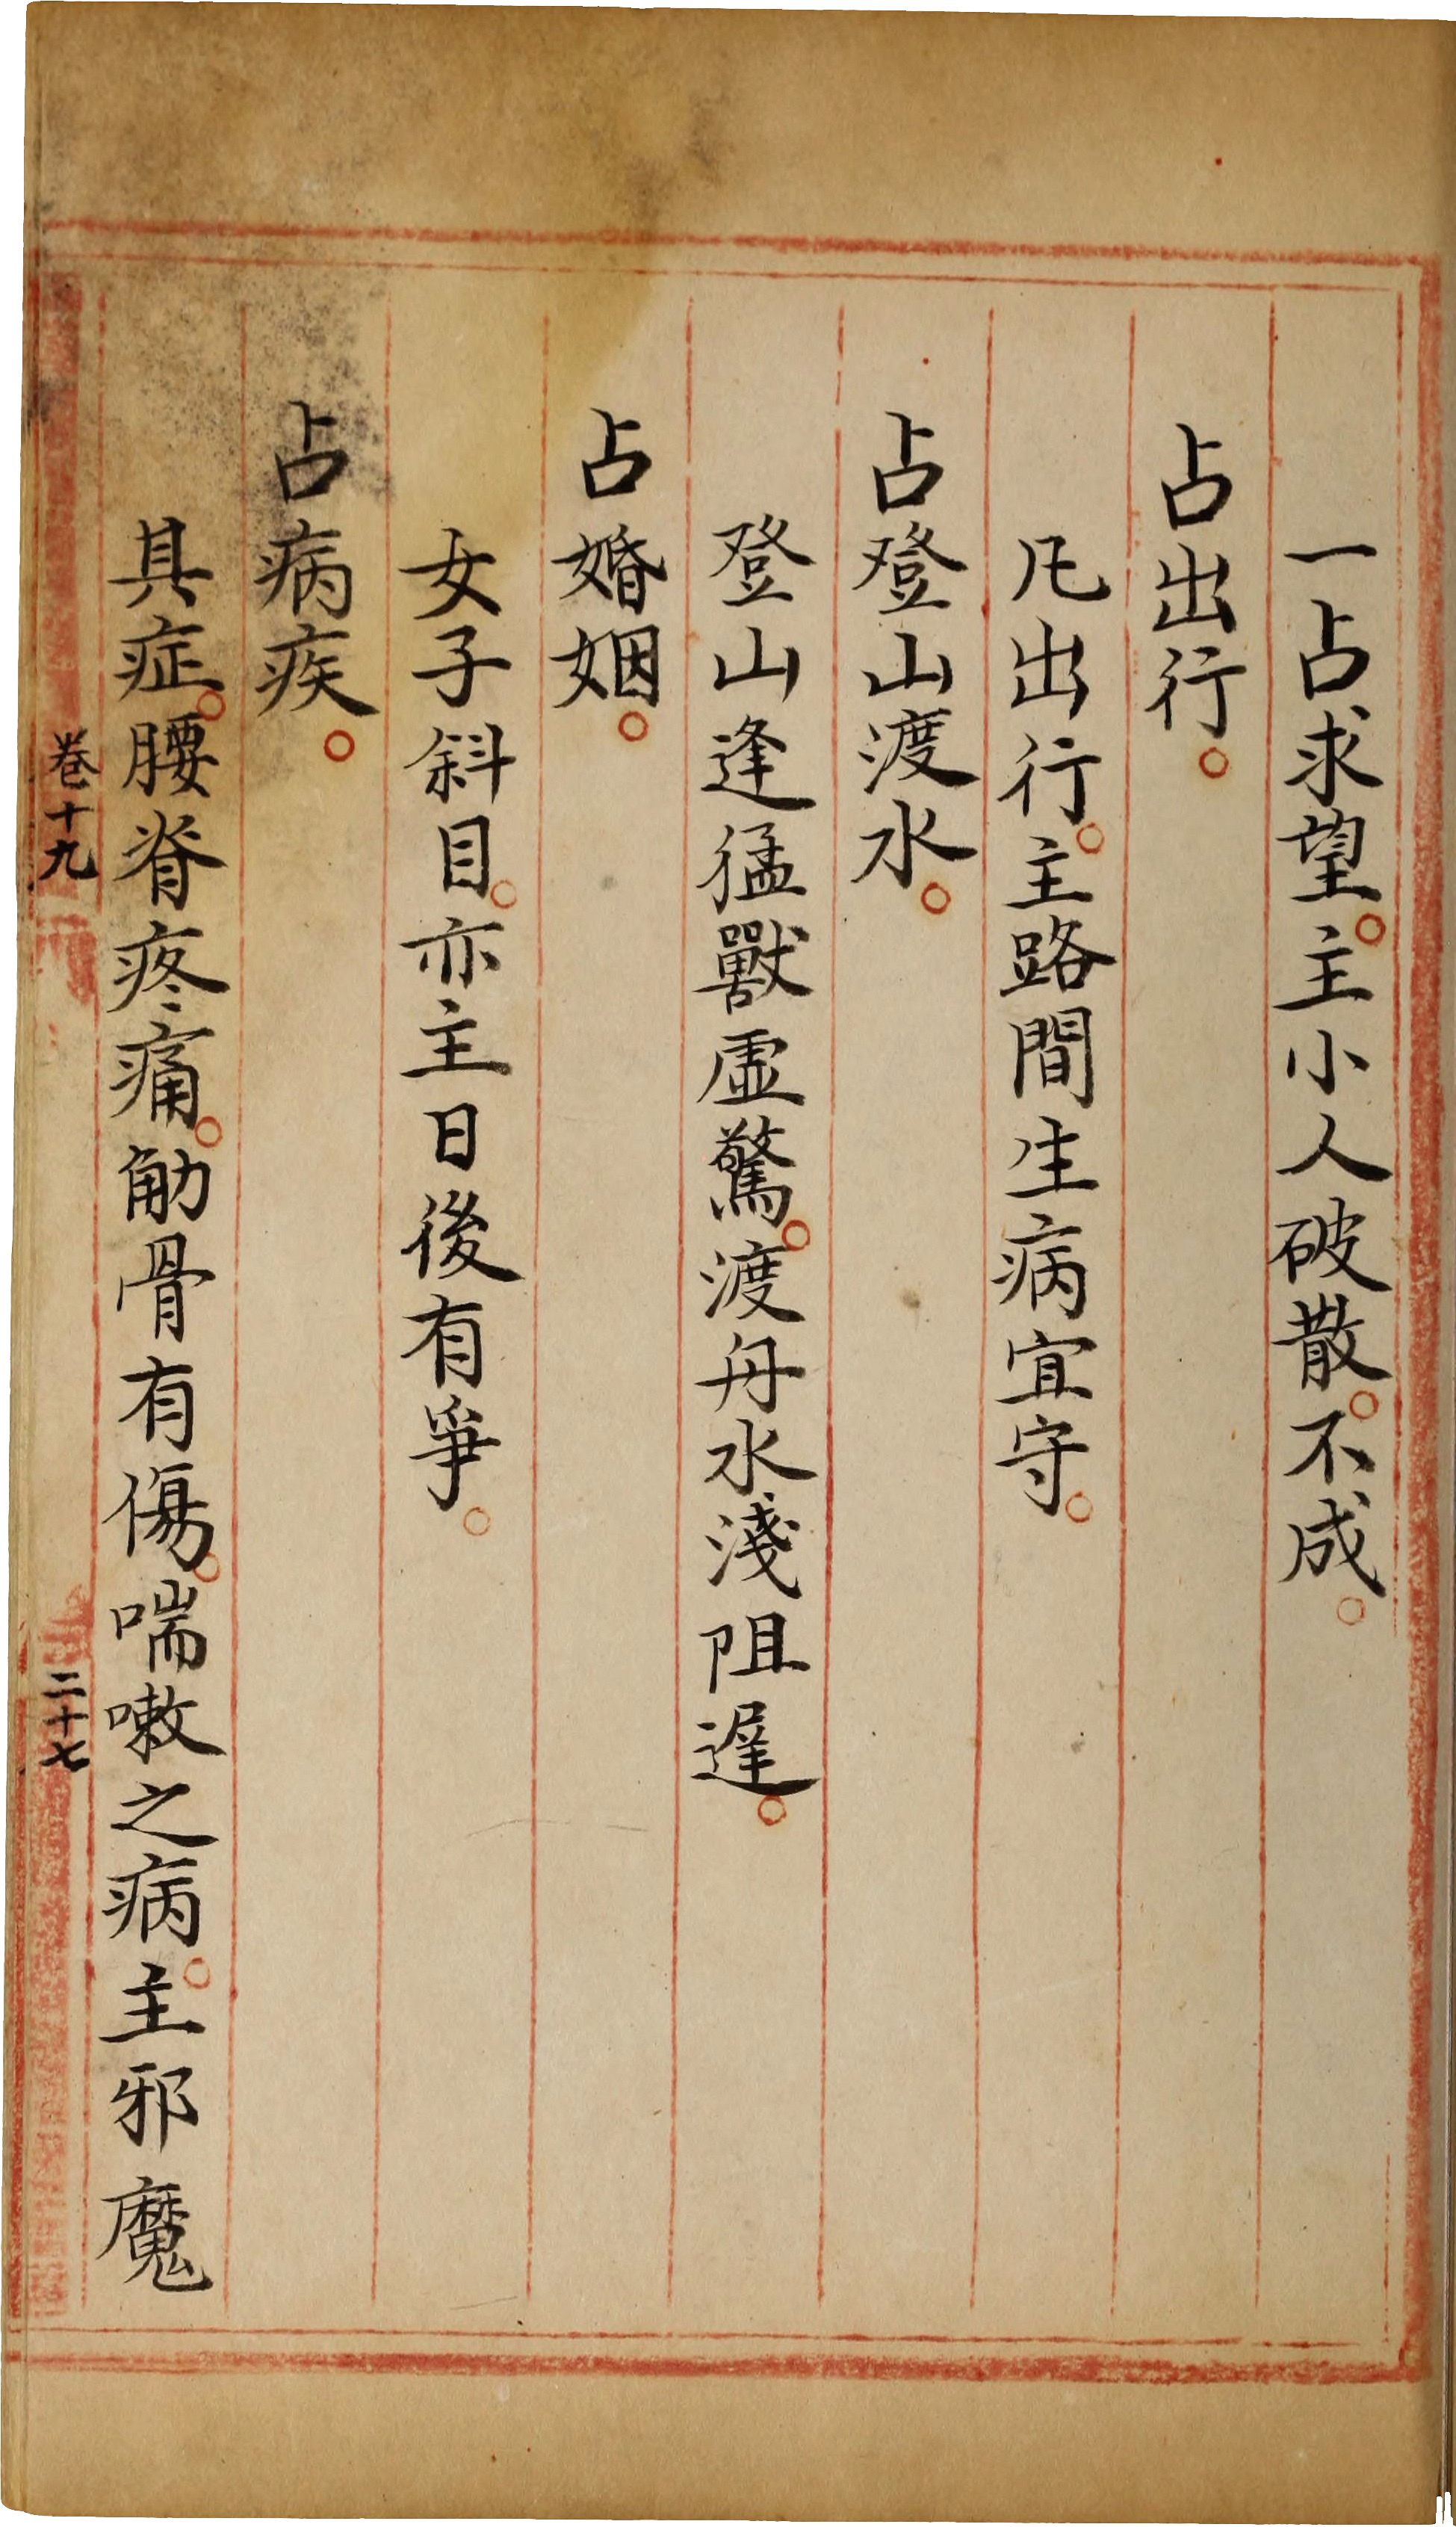 一占求望。主小人破散。不成。
占出行。
凡出行。主路間生病宜守。
占登山渡水。
登山逢猛獸虛驚。渡舟水淺阻遲。
占婚姻。
女子斜目。亦主日後有爭。
占病疾。
具症。腰脊疼痛。觔骨有傷。喘嗽之病。主邪魔
卷十九
二十七